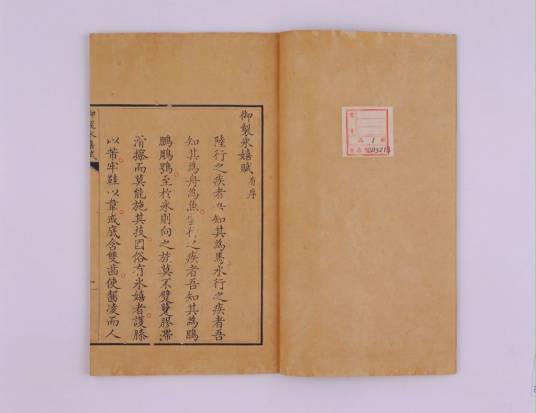 御製冰嬉賦 有序
陸行之疾者吾知其為馬水行之疾者吾
知其為舟為魚雲行之疾者吾知其為鵾
鵬鵰鶚至於冰則向之族莫不躄躠膠滯
滑擦而莫能施其技國俗有冰嬉者護膝
以芾牢鞵以韋或底含雙齒使齧凌而人
御製冰嬉賦
一